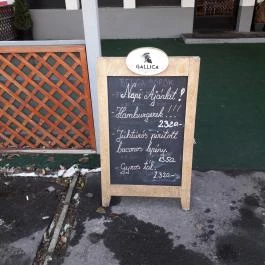 GALLICA
Napi Ajánlat!
Hamburgerek!!!
2320.-
Juhtúrós pirított
baconos lepény
1350.-
Gyros tál
2320.-